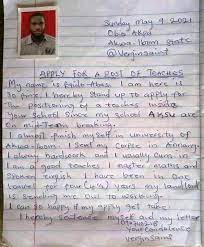 Sunday May 9 2021
Obio Akpa
Akwa-Ibom State
@Verjinsaint
APPLY FOR A POST OF TEACHER
My name is
am here
to
I hereby stand up to apply for
The positioning of a teacher inside
Your School Since my school AKSU are
On mid-Term breaking.
I almost finish my self in university of
Akwa-Ibom. I sent my corpse in
I alway handwork and I usually cum in
I am a good teacher I masters maths and
Spoken english I have been in One
Leaves for four (4½) years my landlord
is sending me out to working.
I can be happy if my apply get take
I hereby sentence myself and my letter
Your
Verjinsaint